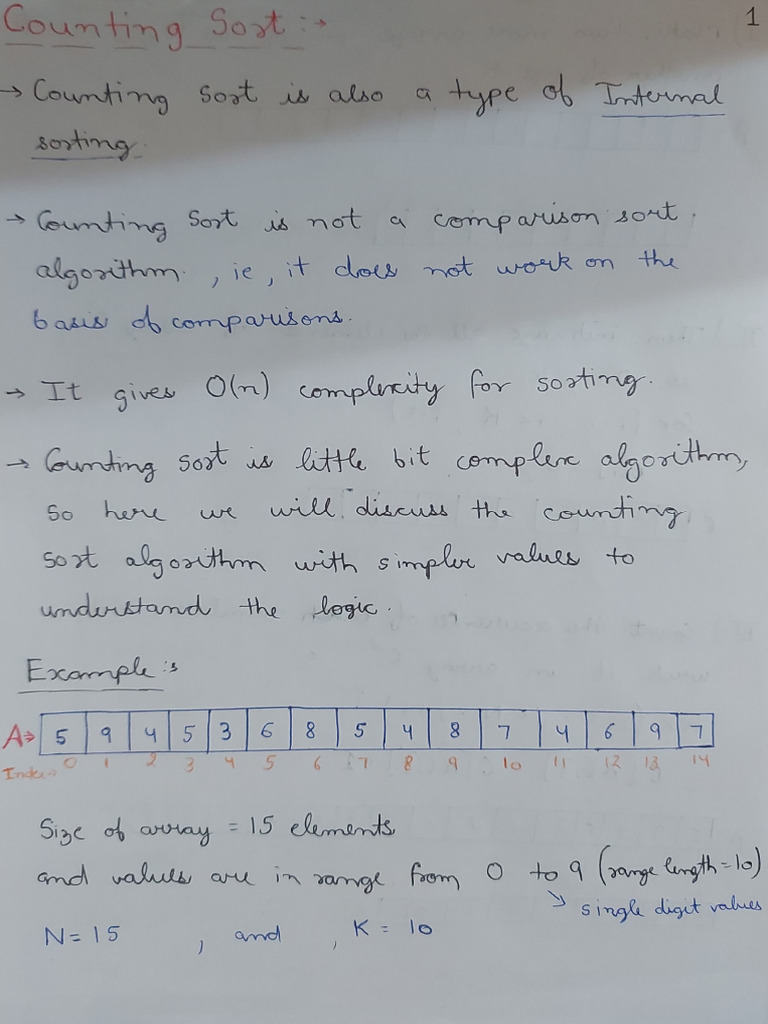 Counting Sort :→
1
→ Counting Sort is also a type of Internal
sorting.
→ Counting Sort is not a comparison sort
algorithm. , ie, it does not work on the
basis of comparisons.
→ It gives O(n) complexity for sorting.
→ Counting sort is little bit complex algorithm,
so here we will discuss the counting
sort algorithm with simpler values to
understand the logic.
Example :→
A→ 5 9 4 5 3 6 8 5 4 8 7 4 6 9 7
Index→ 0 1 2 3 4 5 6 7 8 9 10 11 12 13 14
Size of array = 15 elements
and values are in range from 0 to 9 (range length = 10)
↘ single digit values
N = 15 , and , K = 10